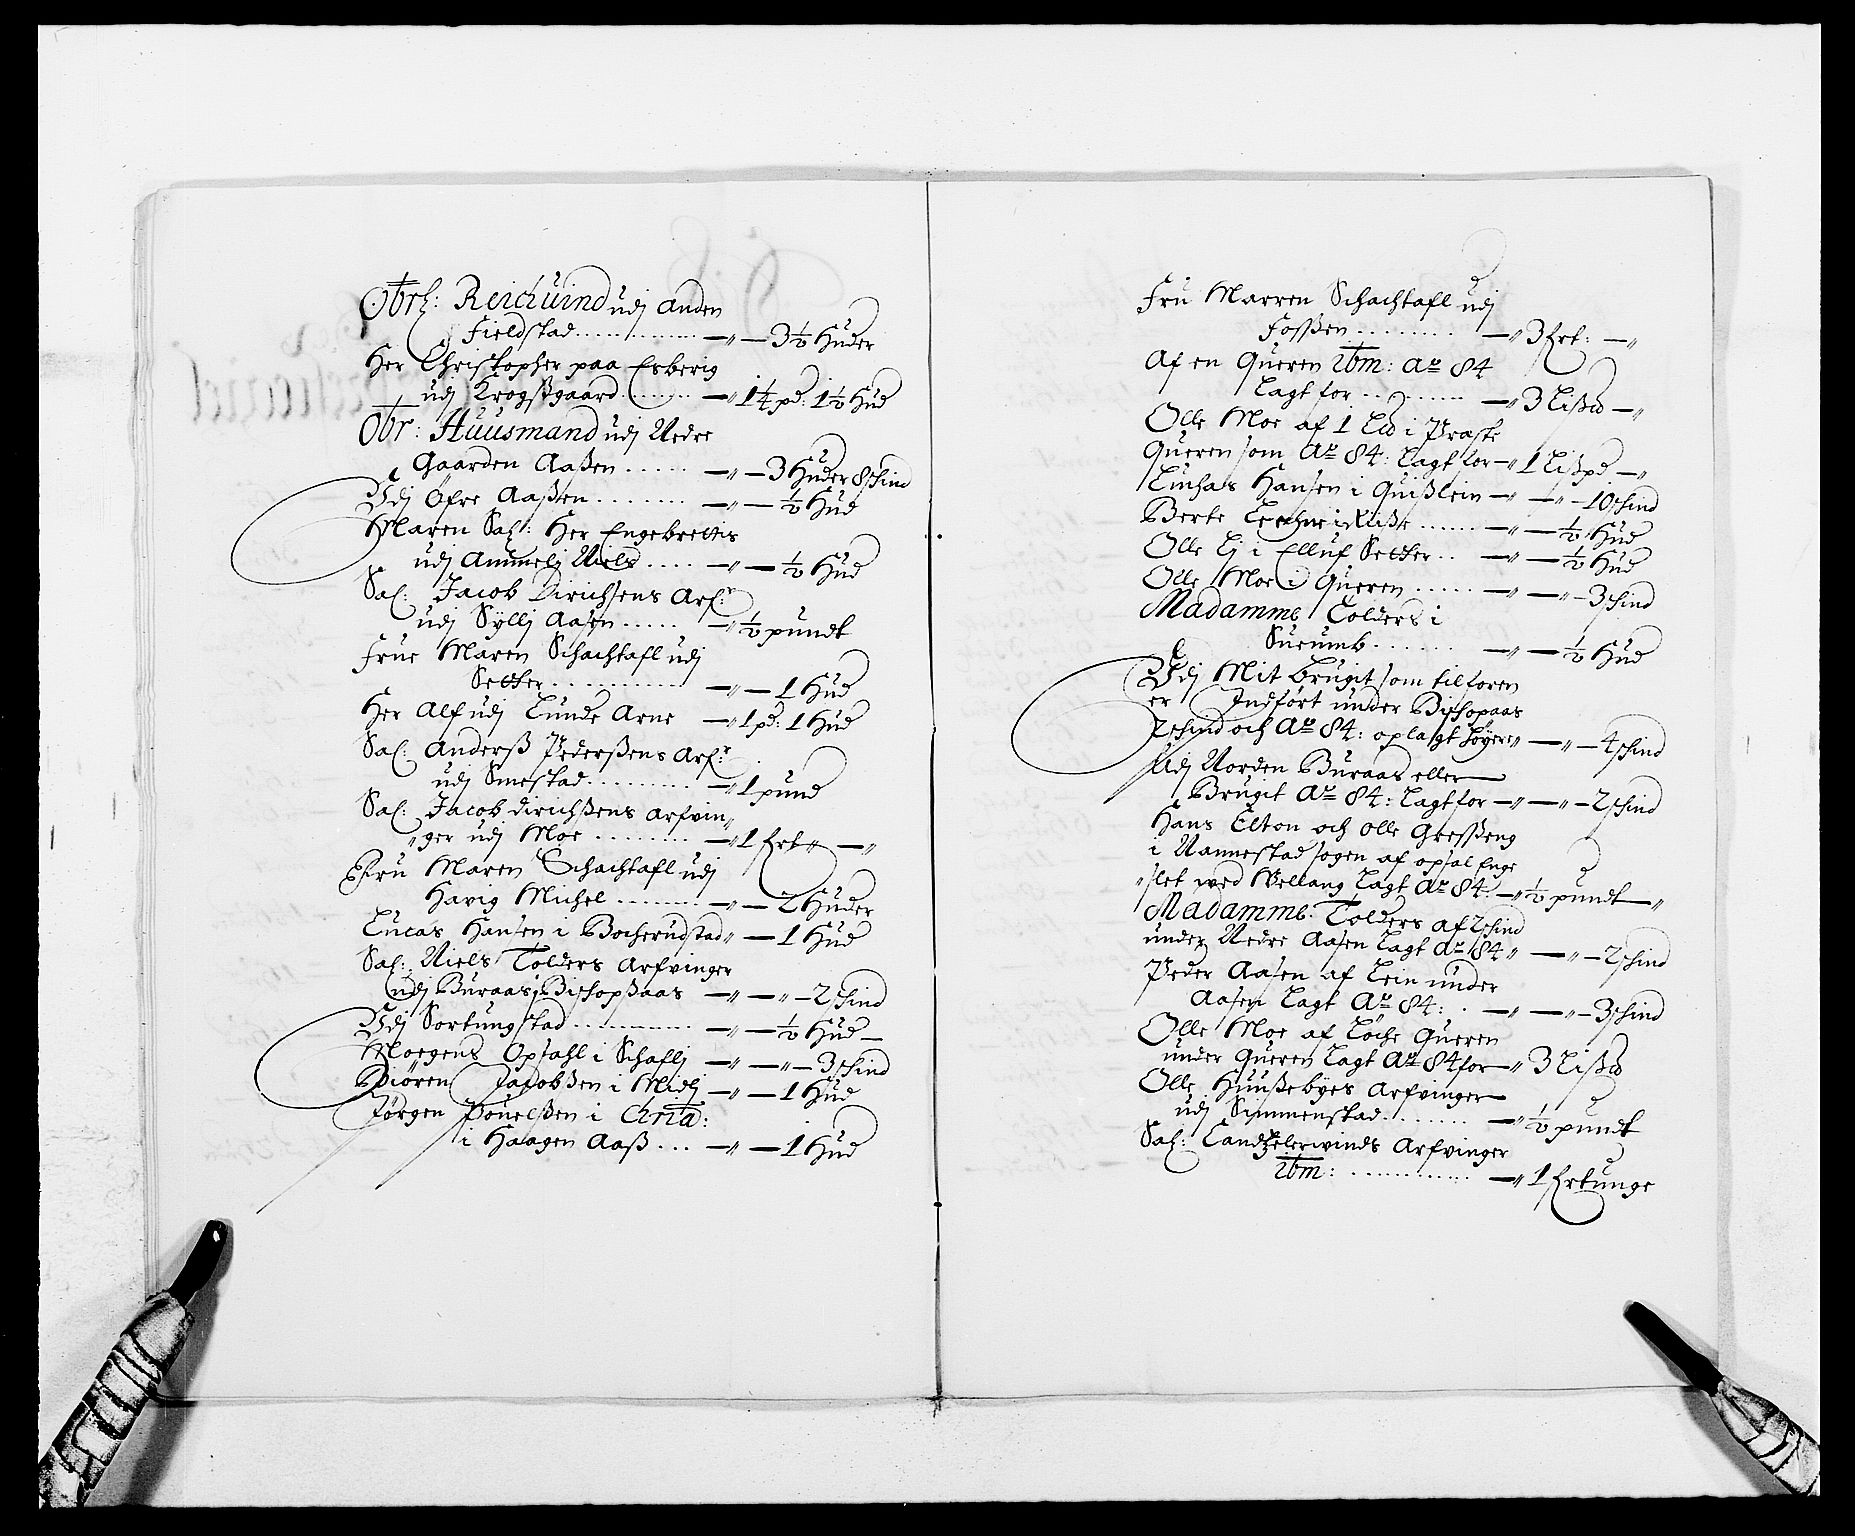 Obrl: Reichwind udj anden
Fieldstad ............ —„— 3½ Huder
Her Christopher paa Esberig
udj Krogsgaard ........ —„ 1¼ pd: 1½ Hud
Obr: Huusmand udj Nedre
Gaarden Aaßen ..... —„— 3 Huder 8 schind
Udj Öfre Aaßen ........ —„— ½ Hud
Maren Sal: Her Engebrettis
udj Ammelj Niels .... —„— ½ Hud
Sal: Jacob Dirichsens Arf:r
udj Sÿllj Aasen ..... —„ ½ pundt
Frue Maren Schachtafl udj
Setter ............ —„— 1 Hud
Her Alf udj Lunde Arne —„ 1 pd: 1 Hud
Sal: Anderß Pederßens Arf:r
udj Smestad ......... —„ 1 pund
Sal: Jacob Dirichßens Arfvin„
„ger udj Moe ......... —„ 1 Frt„ —„
Fru Maren Schachtafl udj
Havig Michel ........ —„— 2 Huder
Lucas Hansen i Bocherudstad „— 1 Hud
Sal: Niels Tolders Arfvinger
udj Buraas, Bischopßaas —„—„— 2 schind
Udj Sortungstad ............ —„— ½ Hud —
Moegens Opsahl i Schaflj —„—„— 3 schind
Biören Jacobßen i Midlj —„— 1 Hud
Jörgen Pouelßen i Chria:
i Haagen Aaß ... —„— 1 Hud
Fru Marren Schachtafl udj
Foßen ......... —„ 3 Frt: —„
Af en Queren ibm: Ao 84
Lagt for .......... —„ 3 Lißd —„
Olle Moe af 1 Lid i Praste
Queren som Ao 84: Lagt for —„ 1 Lißpd —„
Luchas Hansen i Quißlein —„—„— 10 schind
Berte i Riiße ...... —„— ½ Hud
Olle Lj i Elluf Setter .. —„— ½ Hud
Olle Moe i Queren ...... —„—„— 3 schind
Madamme Tolders i
Sueumb ....... —„— ½ Hud
Udj Mit Brugit som tilforen
er Indfört under Bischopaas
2 schind och Ao 84: oplagt höyere „—„— 4 schind
Udj Norden Buraas eller
Brugit Ao 84: Lagt for —„—„— 2 schind
Hans Elton och Olle Greßeng
i Nannestad sogen af opsal Enge
„slet wed Wellang Lagt Ao 84: —„ ½ pundt —„
Madamme: Tolders af 2 schind
under Nedre Aasen Lagt Ao 84 „—„— 2 schind
Peder Aasen af Lein under
Aasen Lagt Ao 84: . —„—„— 3 schind
Olle Moe af Löche Queren
under Queren Lagt Ao 84 for —„ 3 Lißd
Olle Huußebyes Arfvinger
udj Simmenstad ....... —„ ½ pundt
Sal: Candtzelerwinds Arfvinger
ibm: ............. —„ 1 Frtunge